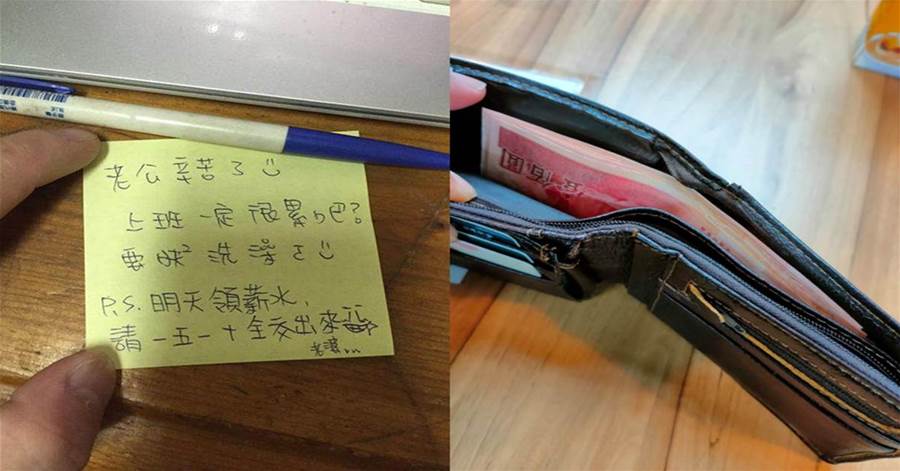 老公辛苦了
上班一定很累吧?
要快洗澡ㄛ
P.S.明天領薪水,
請一五一十全交出來
老婆...